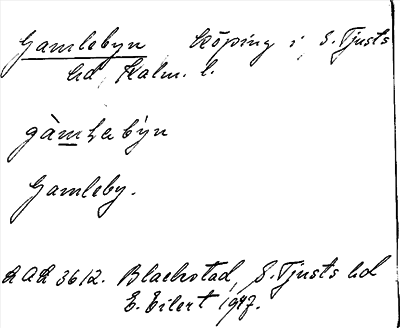 Gamlebyn köping i S. Tjusts
hd, Kalm. l.
gàmḷebýn
Gamleby.
LAL 3612. Blackstad, S. Tjusts hd
E. Eilert 1947.